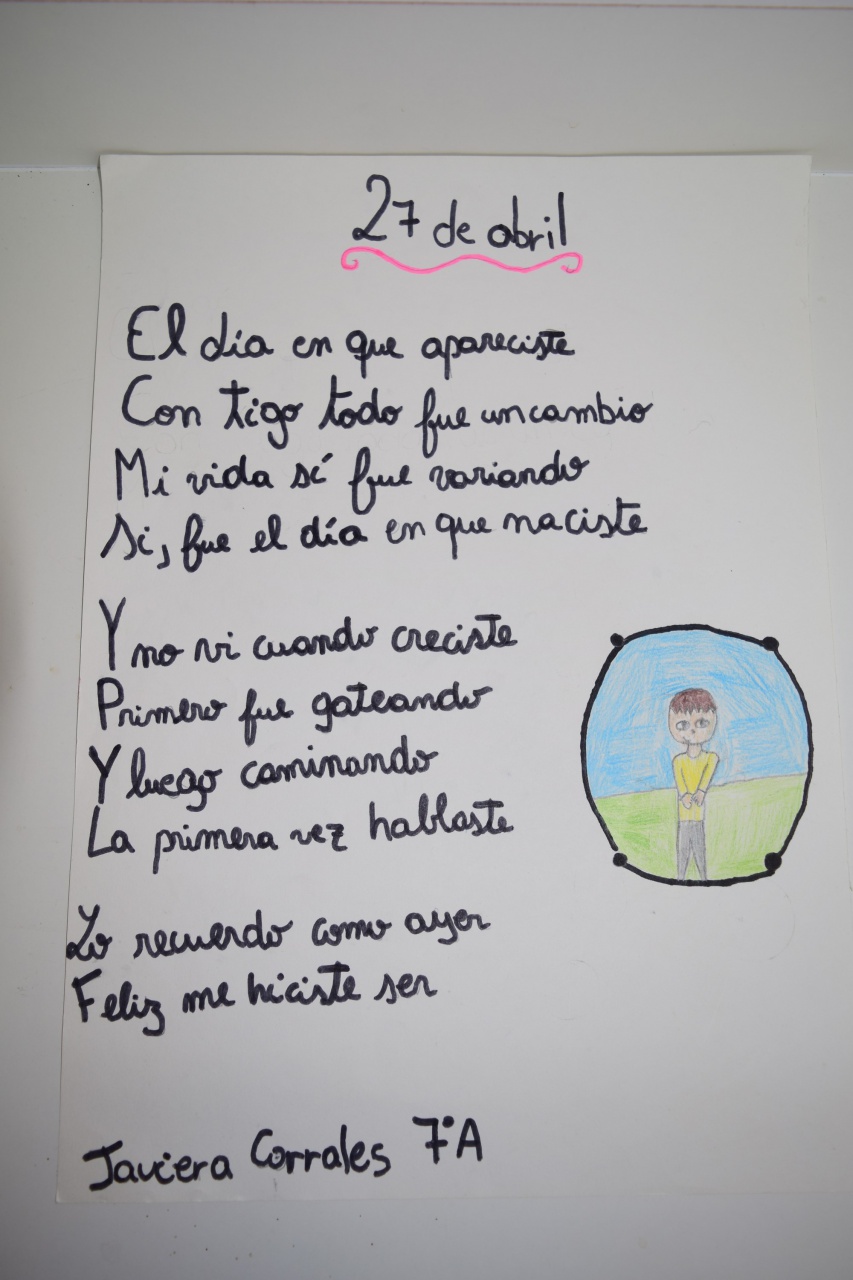 27 de abril
El día en que apareciste
Con tigo todo fue un cambio
Mi vida sí fue variando
Si, fue el día en que naciste
Y no vi cuando creciste
Primero fue gateando
Y luego caminando
La primera vez hablaste
Lo recuerdo como ayer
Feliz me hiciste ser
Javiera Corrales 7°A